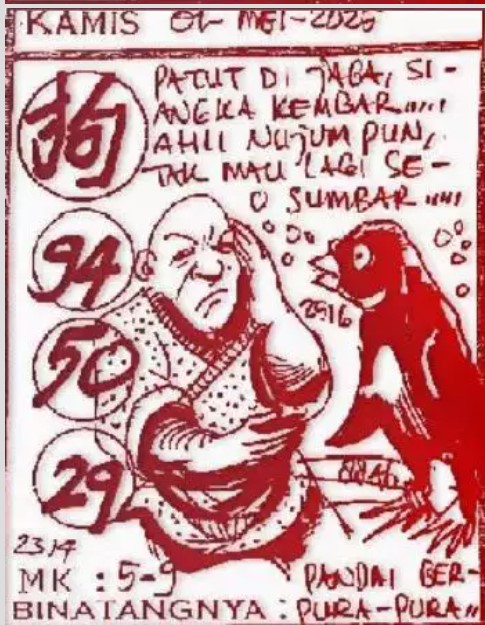 KAMIS 01 MEI-2025
PATUT DI JAGA, SI-
ANGKA KEMBAR....
AHLI NUJUM PUN,
TAK MAU LAGI SE-
O SUMBAR ....
狗
94
50
29
2916
2317
MK : 5-9
PANDAI BER-
BINATANGNYA : PURA-PURA..